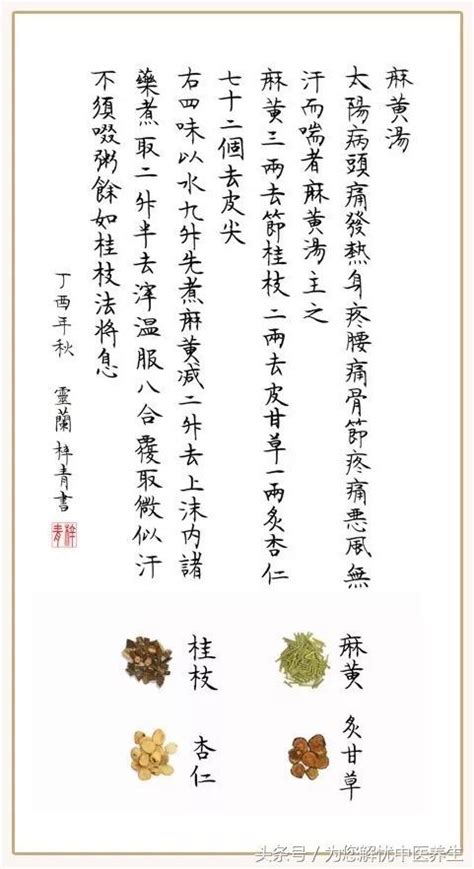 麻黄湯
太陽病頭痛發熱身疼腰痛骨節疼痛惡風無
汗而喘者麻黄湯主之
麻黄三兩去節桂枝二兩去皮甘草一兩炙杏仁
七十二個去皮尖
右四味以水九升先煮麻黄减二升去上沫内諸
藥煮取二升半去滓温服八合覆取微似汗
不須啜粥餘如桂枝法將息
丁酉年秋 靈蘭梓青書
梓青
麻黄
桂枝
炙甘草
杏仁
头条号/为您解忧中医养生